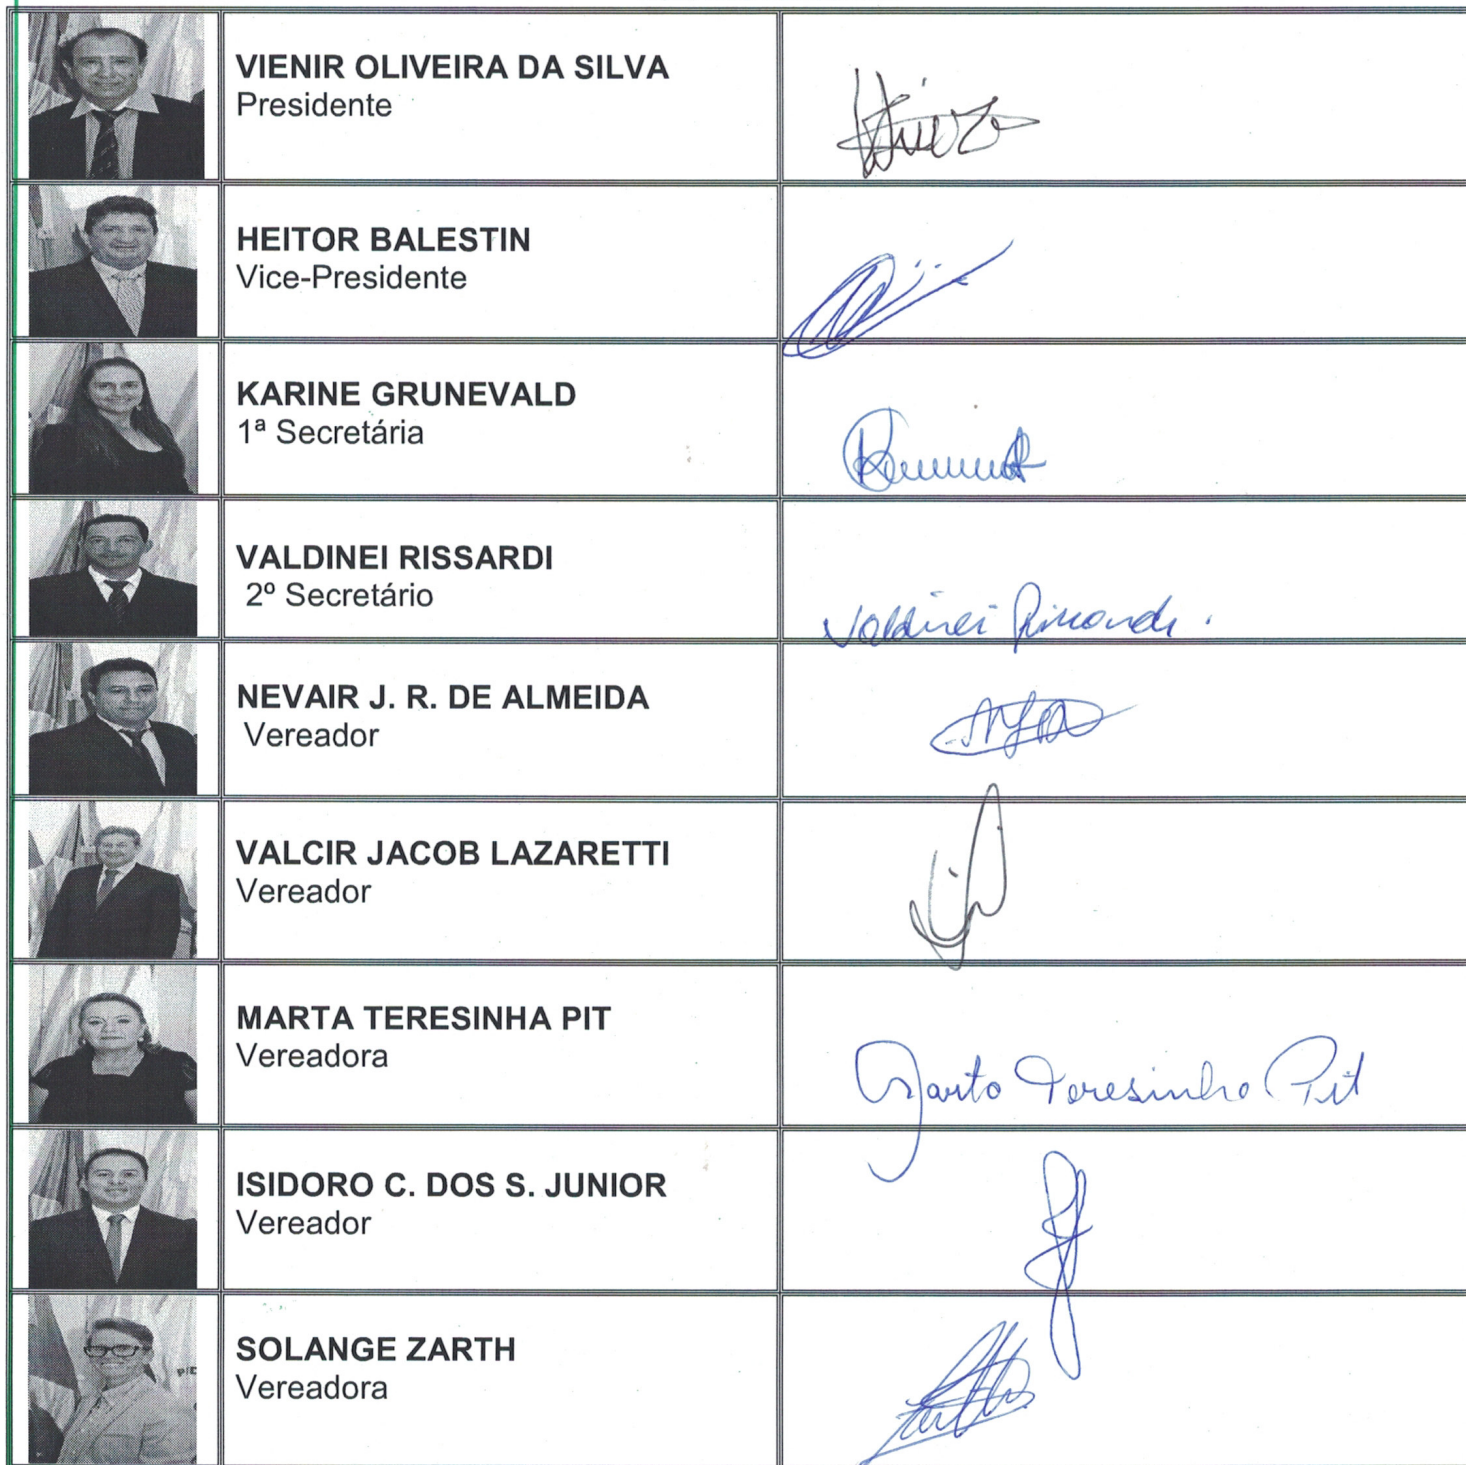 VIENIR OLIVEIRA DA SILVA
Presidente
HEITOR BALESTIN
Vice-Presidente
KARINE GRUNEVALD
1ª Secretária
VALDINEI RISSARDI
2º Secretário
Valdinei Rissardi.
NEVAIR J. R. DE ALMEIDA
Vereador
VALCIR JACOB LAZARETTI
Vereador
MARTA TERESINHA PIT
Vereadora
Marta Teresinha Pit
ISIDORO C. DOS S. JUNIOR
Vereador
SOLANGE ZARTH
Vereadora